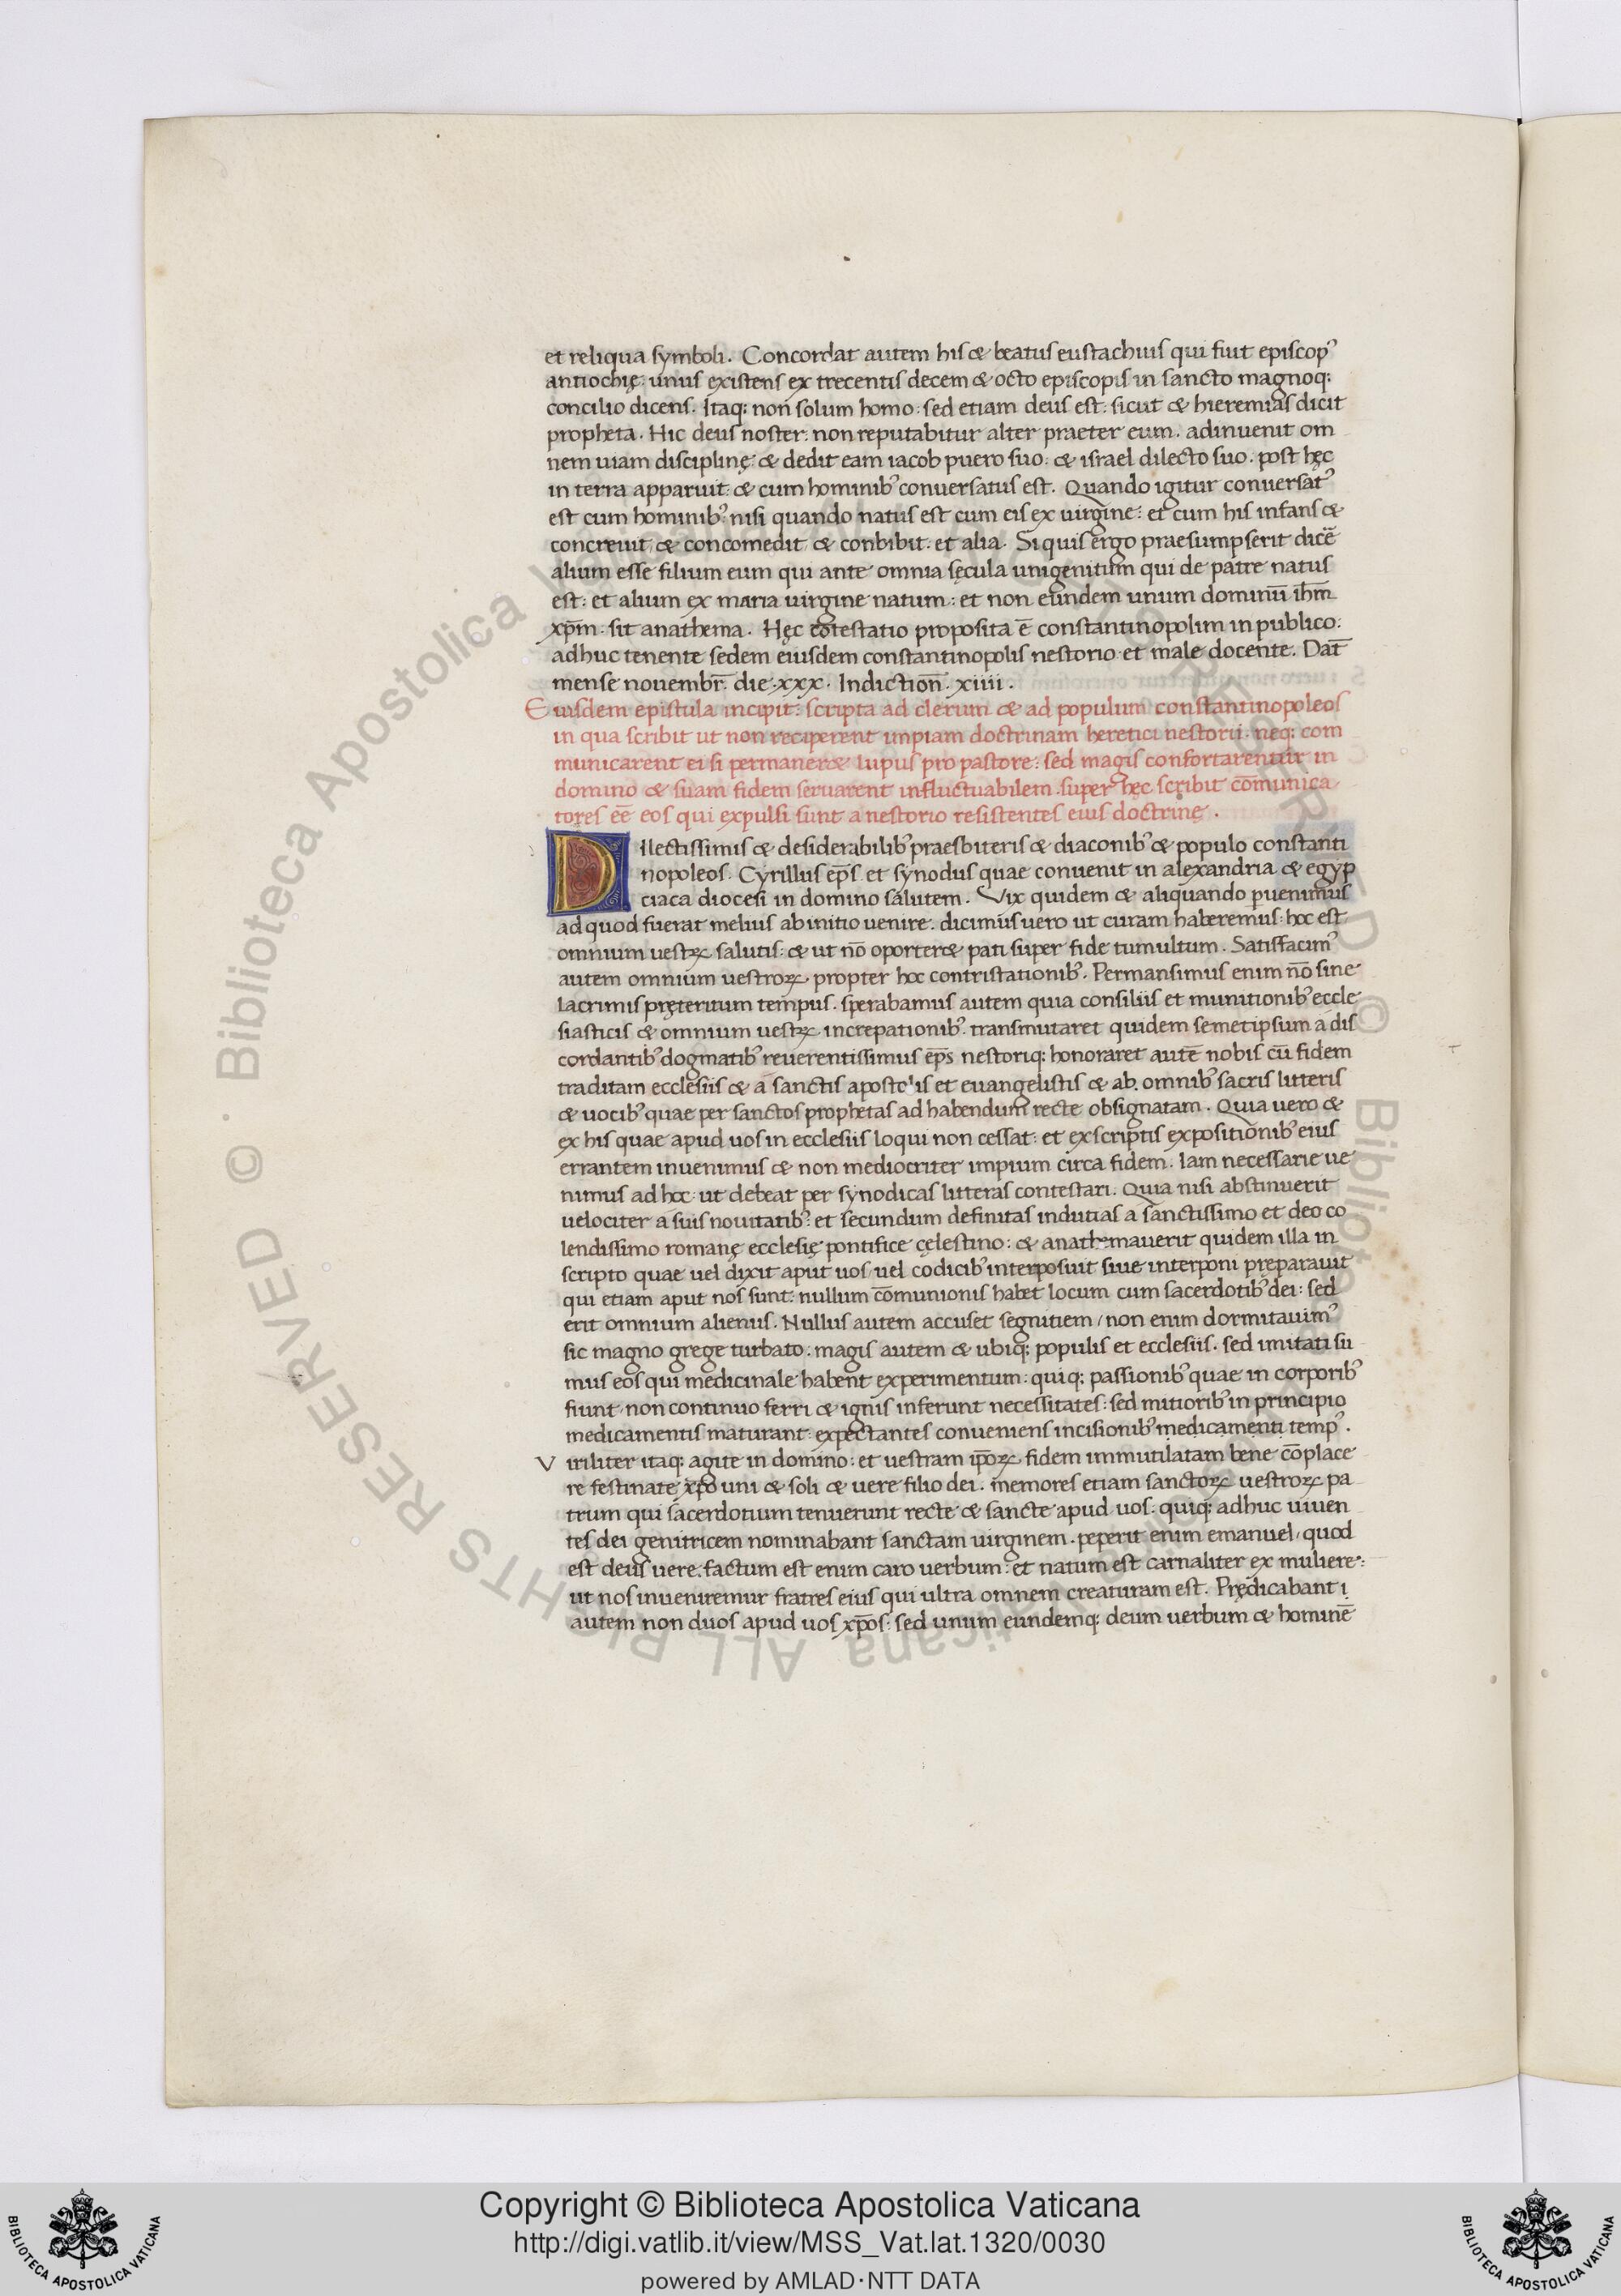 et reliqua symboli. Concordat autem his & beatus eustachius qui fuit episcopꝰ
antiochię: unus existens ex trecentis decem & octo episcopis in sancto magnoq;
concilio dicens. Itaq; non solum homo: sed etiam deus est: sicut & hieremias dicit
propheta. Hic deus noster: non reputabitur alter praeter eum. adinuenit om
nem uiam disciplinę: & dedit eam iacob puero suo: & israel dilecto suo. post hęc
in terra apparuit: & cum hominibꝰ conuersatus est. Quando igitur conuersatꝰ
est cum hominibꝰ: nisi quando natus est cum eis ex uirgine: et cum his infans &
concreuit, & concomedit, & conbibit. et alia. Si quis ergo praesumpserit dicē
alium esse filium eum qui ante omnia sęcula unigenitum qui de patre natus
est: et alium ex maria uirgine natum: et non eundem unum dominū ih̄m
xp̄m. sit anathema. Hęc cōtestatio proposita ē constantinopolim in publico:
adhuc tenente sedem eiusdem constantinopolis nestorio et male docente. Dat̄
mense nouembr̄. die .xxx. Indiction̄. xiiii.
Eiusdem epistula incipit: scripta ad clerum & ad populum constantinopoleos
in qua scribit ut non reciperent impiam doctrinam heretici nestorii. neq; com
municarent ei si permaner& lupus pro pastore: sed magis confortarentur in
domino & suam fidem seruarent influctuabilem. super hęc scribit cōmunica
tores eē eos qui expulsi sunt a nestorio resistentes eius doctrinę.
Dilectissimis & desiderabilibꝰ praesbiteris & diaconibꝰ & populo constanti
nopoleos. Cyrillus ep̄s et synodus quae conuenit in alexandria & egyp
ciaca diocesi in domino salutem. Vix quidem & aliquando peruenimus
ad quod fuerat melius ab initio uenire. dicimus uero ut curam haberemus: hoc est
omnium uestrꝝ salutis: & ut nō oporter& pati super fide tumultum. Satisfacimꝰ
autem omnium uestroꝝ. propter hoc contristationibꝰ. Permansimus enim nō sine
lacrimis pręteritum tempus. sperabamus autem quia consiliis et munitionibꝰ eccle
siasticis & omnium uestrꝝ. increpationibꝰ. transmutaret quidem semetipsum a dis
cordantibꝰ dogmatibꝰ reuerentissimus ep̄s nestoriq: honoraret autē nobis cū fidem
traditam ecclesiis & a sanctis apostolis et euangelistis & ab omnibꝰ sacris litteris
& uocibꝰ quae per sanctos prophetas ad habendum recte obsignatam. Quia uero &
ex his quae apud uos in ecclesiis loqui non cessat: et ex scriptis expositionibꝰ eius
errantem inuenimus & non mediocriter impium circa fidem. Iam necessarie ue
nimus ad hoc: ut debeat per synodicas litteras contestari. Quia nisi abstinuerit
uelociter a suis nouitatibꝰ: et secundum definitas indutias a sanctissimo et deo co
lendissimo romanę ecclesię pontifice cęlestino: & anathemauerit quidem illa in
scripto quae uel dixit aput uos uel codicibꝰ interposuit siue interponi pręparauit
qui etiam aput nos sunt: nullum cōmunionis habet locum cum sacerdotibꝰ dei: sed
erit omnium alienus. Nullus autem accuset segnitiem / non enim dormitauimꝰ
sic magno grege turbato: magis autem & ubiq; populis et ecclesiis. sed imitati su
mus eos qui medicinale habent experimentum: quiq; passionibꝰ quae in corporibꝰ
fiunt non continuo ferri & ignis inferunt necessitates: sed mitioribꝰ in principio
medicamentis maturant: expectantes conueniens incisionibꝰ medicamenti tempꝰ.
Viriliter itaq; agite in domino: et uestram ip̄oꝝ fidem immutilatam bene cōplace
re festinate xp̄o uni & soli & uere filio dei. memores etiam sanctoꝝ uestroꝝ pa
trum qui sacerdotium tenuerunt recte & sancte apud uos: quiq; adhuc uiuen
tes dei genitricem nominabant sanctam uirginem. peperit enim emanuel, quod
est deus uere. factum est enim caro uerbum: et natum est carnaliter ex muliere:
ut nos inueniremur fratres eius qui ultra omnem creaturam est. Prędicabant i
autem non duos apud uos xp̄os: sed unum eundemq; deum uerbum & hominē
Copyright © Biblioteca Apostolica Vaticana
http://digi.vatlib.it/view/MSS_Vat.lat.1320/0030
powered by AMLAD·NTT DATA
BIBLIOTECA APOSTOLICA VATICANA
BIBLIOTECA APOSTOLICA VATICANA
© Biblioteca Apostolica Vaticana ALL RIGHTS RESERVED
© Biblioteca Apostolica Vaticana ALL RIGHTS RESERVED